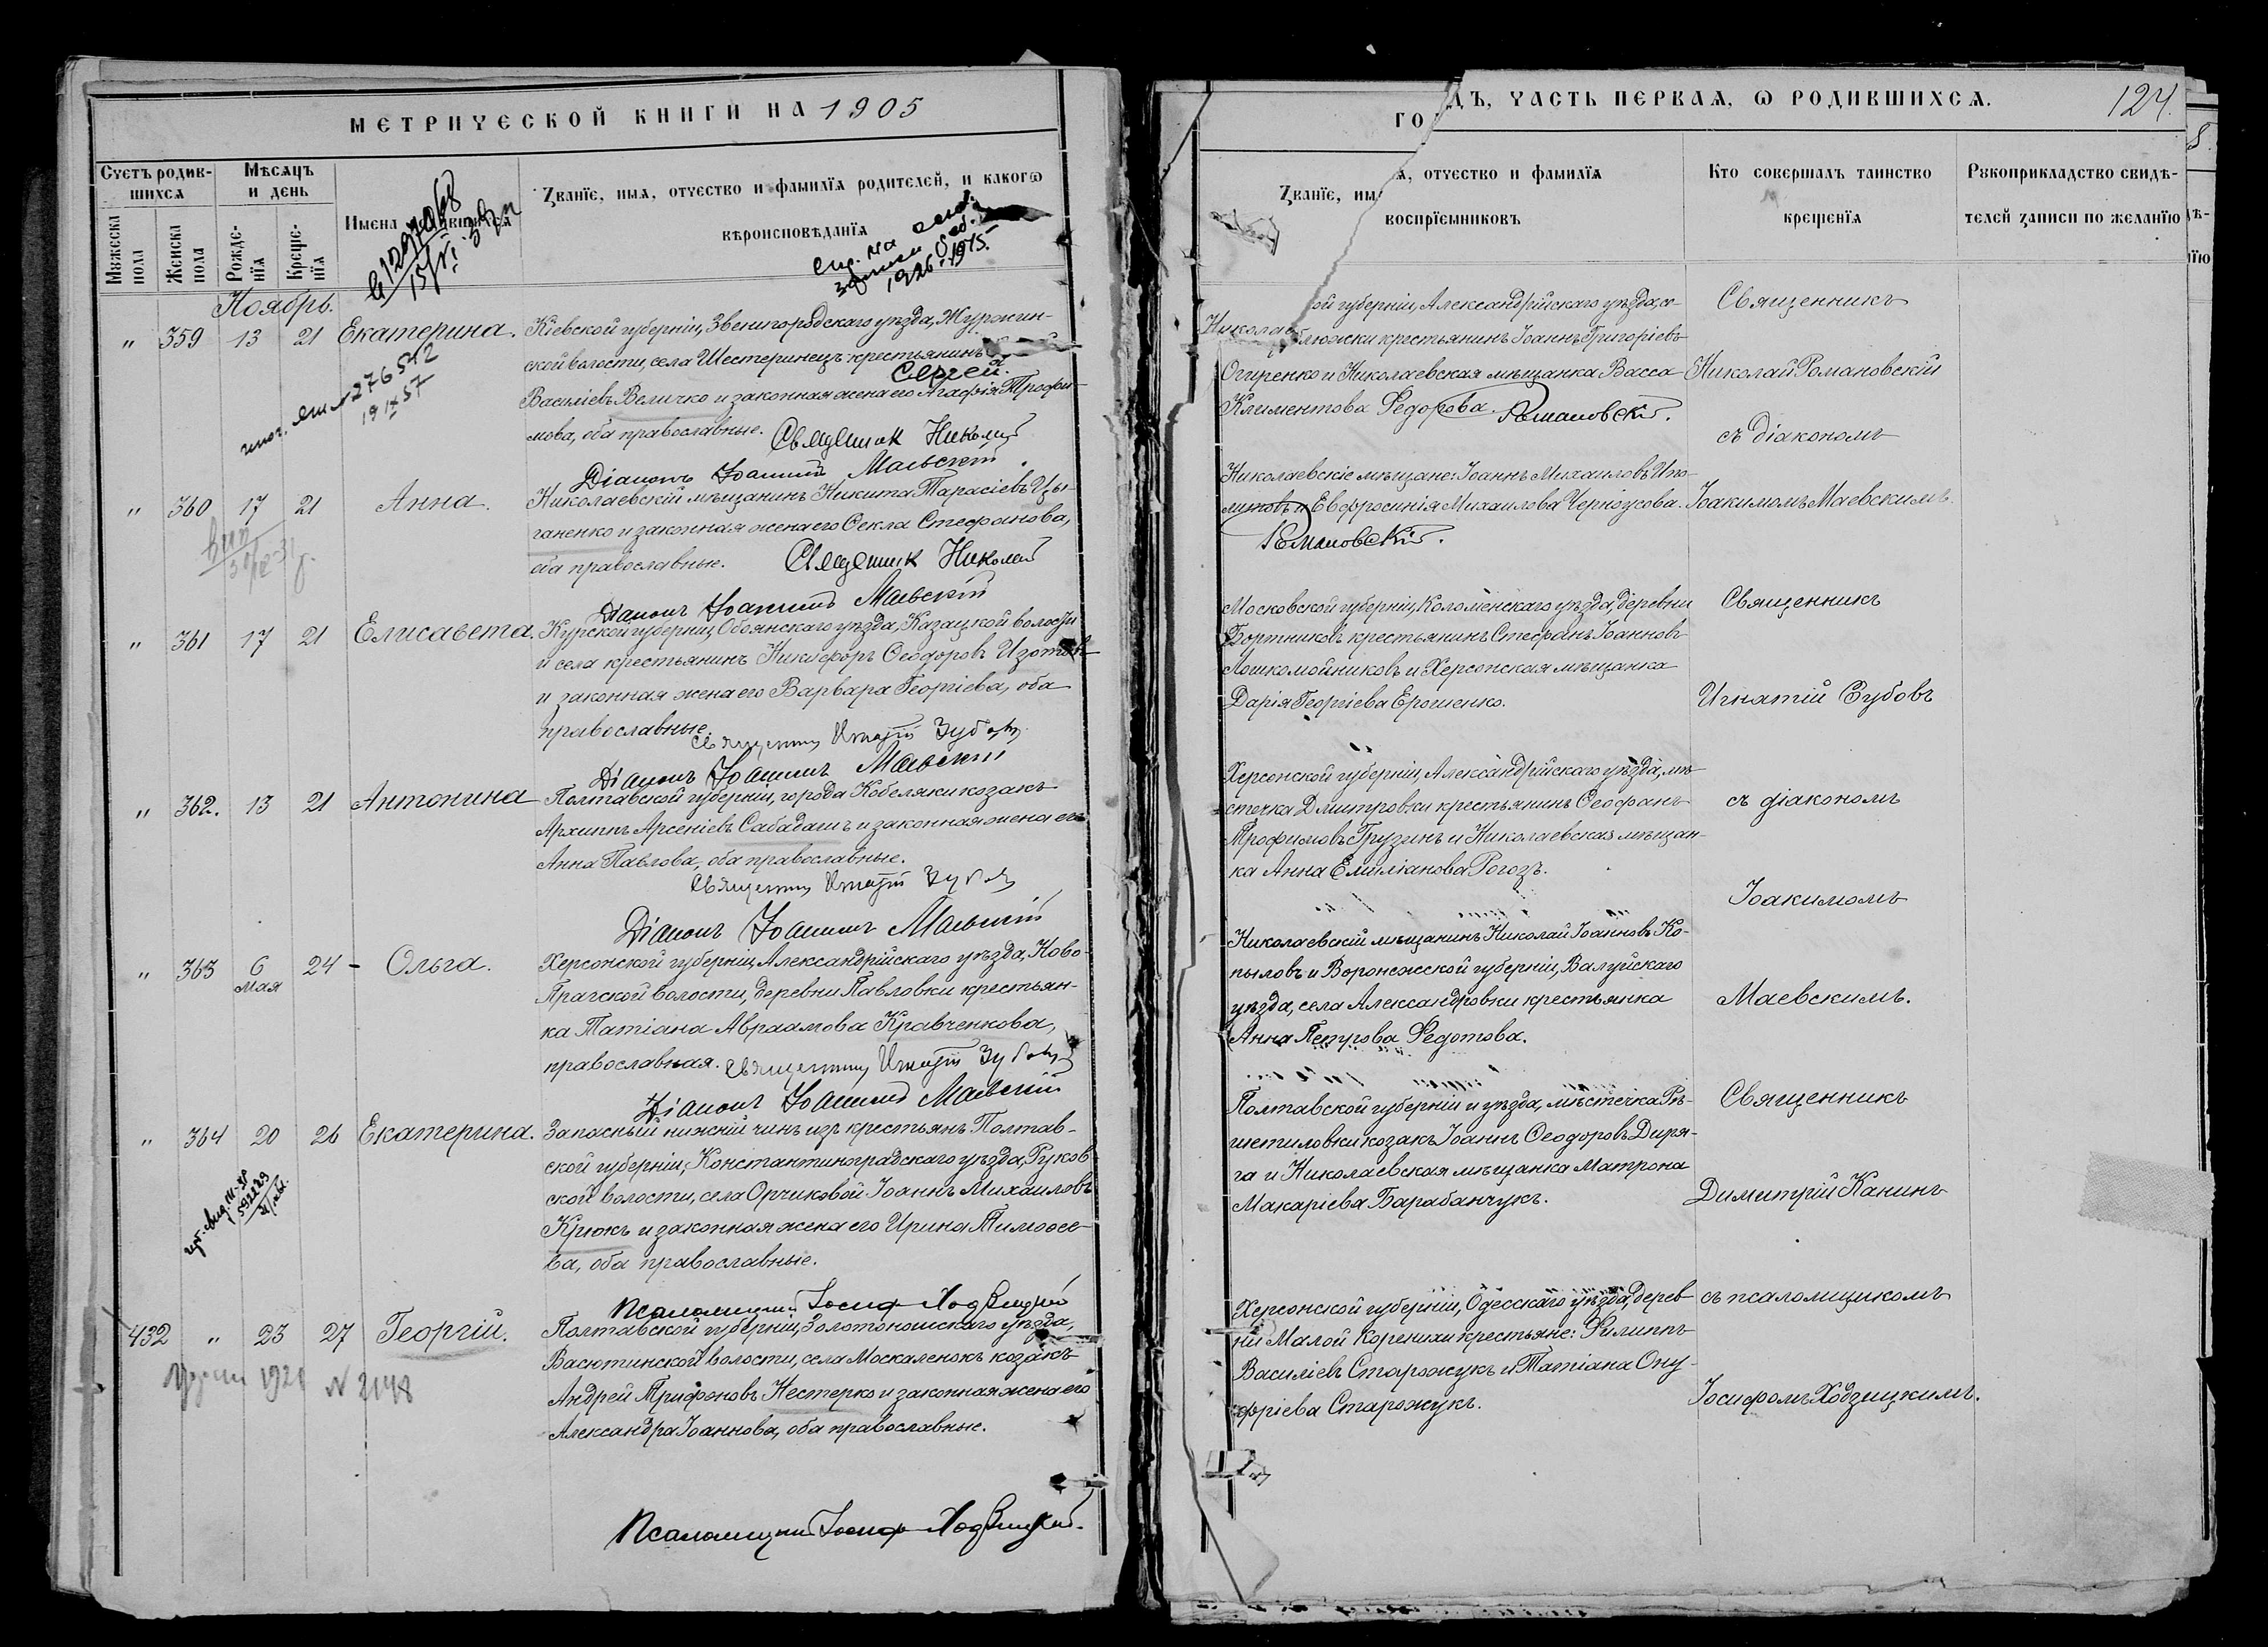 МЕТРИЧЕСКОЙ КНИГИ НА 1905
Счетъ родив-
шихсѧ
Мѣсѧцъ
и день
Имена
Званїе, имѧ, отчество и фамилїѧ родителей, и какогѡ
вѣроисповѣданїѧ
Мꙋжеска
пола
Женска
пола
Рожде-
нїѧ
Креще-
нїѧ
Ноябрь.
" 359 13 21 Екатерина.
Кіевской губерніи, Звенигородскаго уѣзда, Журжин-
ской волости, села Шестеринецъ крестьянинъ
Сергей
Василіевъ Величко и законная жена его Агафія Трофи-
мова, оба православные. Священник Николай
Діаконъ Іоакимъ Маевскій.
276512
" 360 17 21 Анна.
Николаевскій мѣщанинъ Никита Тарасіевъ Цы-
ганенко и законная жена его Ѳекла Стефанова,
оба православные. Священник Николай
Діаконъ Іоакимъ Маевскій
" 361 17 21 Елисавета.
Курской губерніи, Обоянскаго уѣзда, Казацкой волости
и села крестьянинъ Никифоръ Ѳеодоровъ Изотовъ
и законная жена его Варвара Георгіева, оба
православные. Священникъ Игнатій Зубовъ
Діаконъ Іоакимъ Маевскій
" 362. 13 21 Антонина
Полтавской губерніи, города Кобеляки козакъ
Архиппъ Арсеніевъ Сабадашъ и законная жена его
Анна Павлова, оба православные.
Священникъ Игнатій Зубовъ
Діаконъ Іоакимъ Маевскій
" 363 6 мая 24 - Ольга.
Херсонской губерніи, Александрійскаго уѣзда, Ново-
Прагской волости, деревни Павловки крестьян-
ка Татіана Авраамова Кравченкова,
православная. Священникъ Игнатій Зубовъ
Діаконъ Іоакимъ Маевскій
" 364 20 26 Екатерина.
Запасный нижній чинъ изъ крестьянъ Полтав-
ской губерніи, Константиноградскаго уѣзда, Руков-
ской волости, села Орчиковой Іоаннъ Михаиловъ
Крюкъ и законная жена его Ирина Тимоѳее-
ва, оба православные.
Псаломщикъ Іосифъ Ходзицкій
432 " 23 27 Георгій.
Полтавской губерніи, Золотоношскаго уѣзда,
Васютинской волости, села Москаленокъ козакъ
Андрей Трифоновъ Нестерко и законная жена его
Александра Іоаннова, оба православные.
1921 N 2148
Псаломщикъ Іосифъ Ходзицкій.
ГО ДЪ, ЧАСТЬ ПЕРВАѦ, Ѡ РОДИВШИХСѦ. 124.
Званїе, им ѧ, отчество и фамилїѧ
воспрїемниковъ
Кто совершалъ таинство
крещенїѧ
Рꙋкоприкладство свидѣ-
телей записи по желанїю
ой губерніи, Александрійскаго уѣзда, с.
крестьянинъ Іоаннъ Григоріевъ
Огиренко и Николаевская мѣщанка Васса
Климентова Федорова. Романовскій.
Священникъ
Николай Романовскій
съ діакономъ
Іоакимомъ Маевскимъ
Николаевскіе мѣщане: Іоаннъ Михаиловъ Ипо-
литовъ и Евфросинія Михаилова Черноусова.
Романовскій.
Московской губерніи, Коломенскаго уѣзда, деревни
Бортниковъ крестьянинъ Стефанъ Іоанновъ
Лошкомойниковъ и Херсонская мѣщанка
Дарія Георгіева Ерошенко.
Священникъ
Игнатій Зубовъ
Херсонской губерніи, Александрійскаго уѣзда, мѣ-
стечка Дмитровки крестьянинъ Ѳеофанъ
Трофимовъ Грузинъ и Николаевская мѣщан-
ка Анна Емиліанова Рогозъ.
съ діакономъ
Іоакимомъ
Маевскимъ.
Николаевскій мѣщанинъ Николай Іоанновъ Ко-
пыловъ и Воронежской губерніи, Валуйскаго
уѣзда, села Александровки крестьянка
Анна Петрова Федотова.
Полтавской губерніи и уѣзда, мѣстечка Рѣ-
шетиловки козакъ Іоаннъ Ѳеодоровъ Диря-
га и Николаевская мѣщанка Матрона
Макаріева Барабанчукъ.
Священникъ
Димитрій Канинъ
съ псаломщикомъ
Іосифомъ Ходзицкимъ.
Херсонской губерніи, Одесскаго уѣзда, дерев-
ни Малой Коренихи крестьяне: Филиппъ
Василіевъ Старожукъ и Татіана Ону-
фріева Старожукъ.